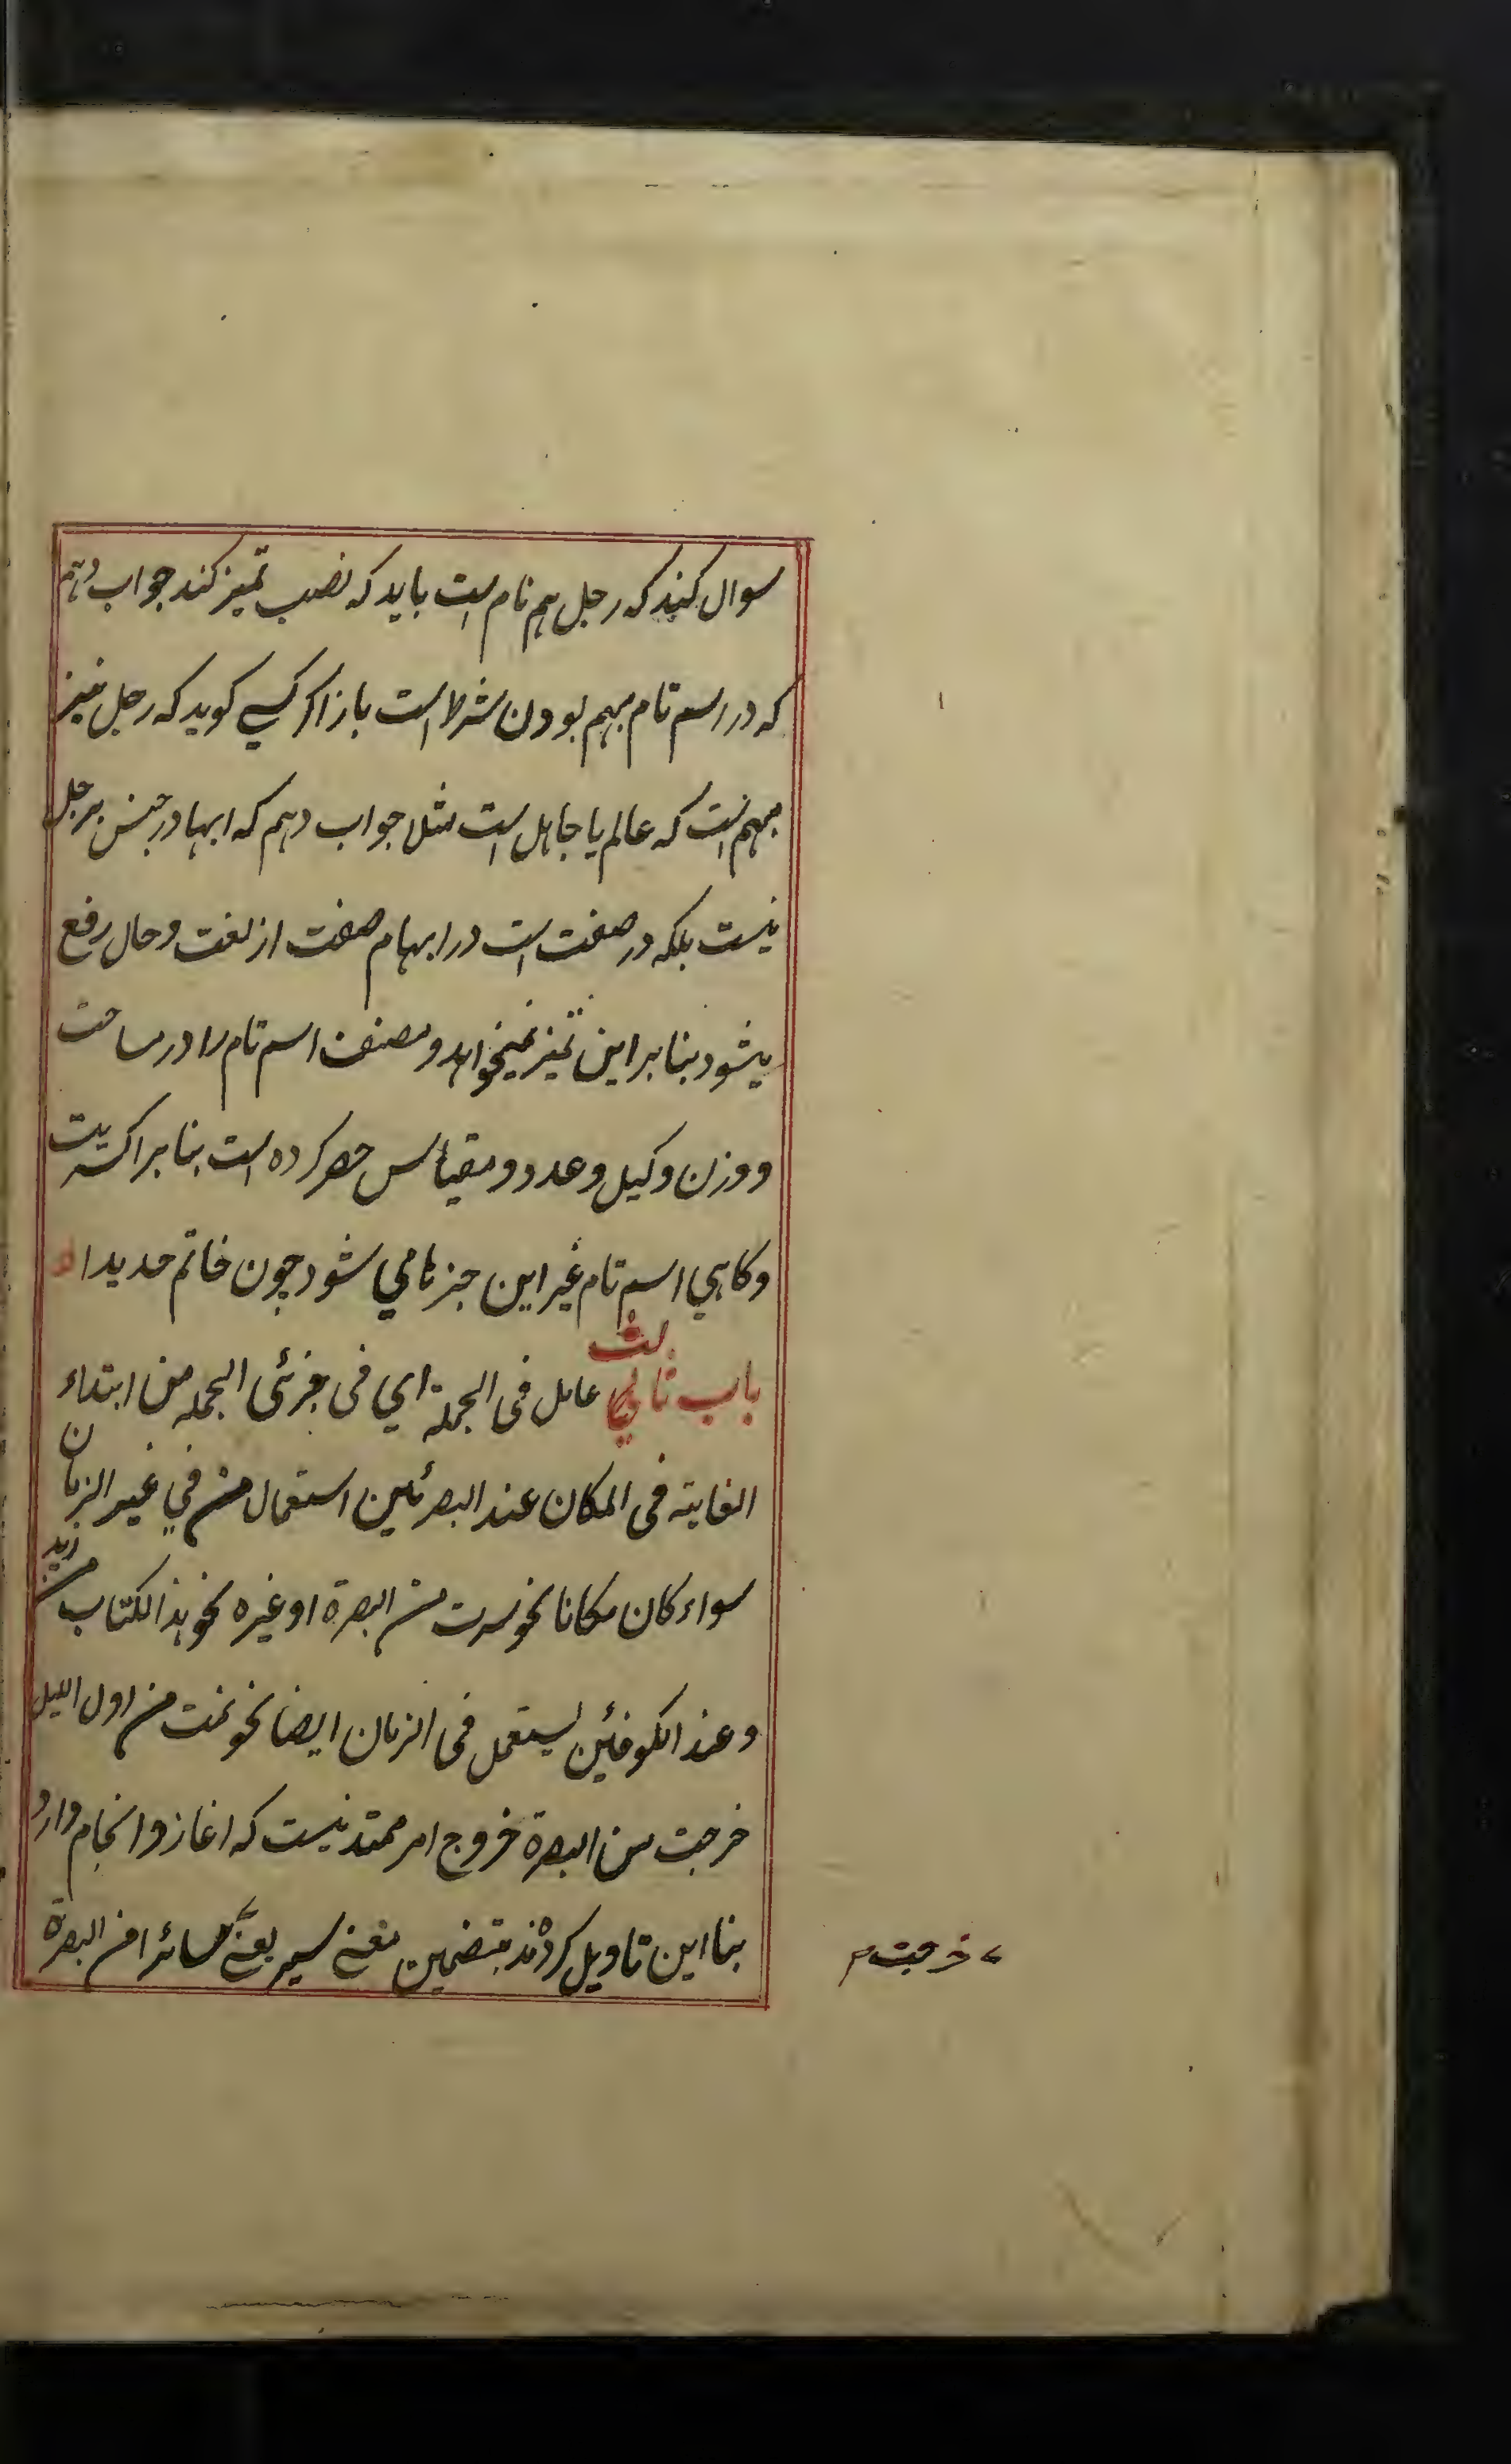 سوال کنند که رجل هم تام است باید که نصب تمیز کند جواب دهم
که در اسم تام مبهم بودن شرط است باز اگر کسی کوید که رجل نیز
مبهم است که عالم یا جاهل است مثلا جواب دهم که ابها در جنس رجل
نیست بلکه در صفت است در ابهام صفت از لغت و حال رفع
میشود بنا براین تمیز نمیخواهد و مصنف اسم تام را در مساحت
و وزن و کیل و عدد و مقیاس حصر کرده است بنا بر اکثریت
و کاهی اسم تام غیر این چیزها می شود چون خاتم حدیدا
باب ثالث عامل فی الجملة ای فی جزئی الجمله من ابتداء
الغایة فی المکان عند البصرئین استعمال من فی غیر الزمان
سواء کان مکانا نحو سرت من البصرة او غیره نحو هذا الکتاب من زید
و عند الکوفئین یستعمل فی الزمان ایضا نحو نمت من اول اللیل
خرجت من البصرة خروج امر ممتد نیست که اغاز و انجام دارد
بنا این تاویل کردند بتضمین معنے سیر یعنے سائرا من البصرة
خرجت م